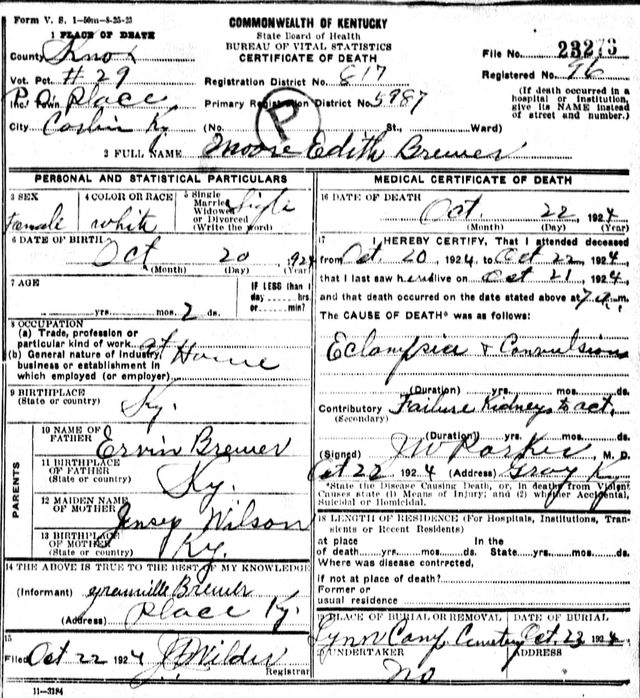 Form V. S. 1-50m-8-25-23
COMMONWEALTH OF KENTUCKY
State Board of Health
BUREAU OF VITAL STATISTICS
CERTIFICATE OF DEATH
1 PLACE OF DEATH
County Knox
Vot. Pct. #29
Inc. Town P.O. Place
City Corbin Ky
File No. 23273
Registered No. 96
Registration District No. 817
Primary Registration District No. 5987
(If death occurred in a hospital or institution, give its NAME instead of street and number.)
(No. St., Ward)
P
2 FULL NAME Moore Edith Brewer
PERSONAL AND STATISTICAL PARTICULARS
3 SEX Female
4 COLOR OR RACE white
5 Single Married Widowed or Divorced (Write the word) Single
6 DATE OF BIRTH Oct 20 1924
(Month) (Day) (Year)
7 AGE
yrs. mos. 2 ds.
IF LESS than 1 day hrs. or min?
8 OCCUPATION
(a) Trade, profession or particular kind of work at Home
(b) General nature of industry, business or establishment in which employed (or employer)
9 BIRTHPLACE (State or country) Ky.
PARENTS
10 NAME OF FATHER Ervin Brewer
11 BIRTHPLACE OF FATHER (State or country) Ky.
12 MAIDEN NAME OF MOTHER Wilson
13 BIRTHPLACE OF MOTHER (State or country) Ky.
14 THE ABOVE IS TRUE TO THE BEST OF MY KNOWLEDGE
(Informant) Granville Brewer
(Address) Place Ky.
15
Filed Oct 22 1924 Wilder
Registrar
11-3184
MEDICAL CERTIFICATE OF DEATH
16 DATE OF DEATH Oct. 22, 1924
(Month) (Day) (Year)
17 I HEREBY CERTIFY, That I attended deceased
from Oct. 20, 1924, to Oct 22, 1924
that I last saw her alive on Oct 21, 1924,
and that death occurred on the date stated above at 7 m.
The CAUSE OF DEATH* was as follows:
Eclampsia & Convulsions
(Duration) yrs. mos. ds.
Contributory (Secondary) Failure Kidneys to act.
(Duration) yrs. mos. ds.
(Signed) J W Parker M. D.
Oct 22 1924 (Address) Gray Ky
*State the Disease Causing Death, or, in deaths from Violent Causes state (1) Means of Injury; and (2) whether Accidental, Suicidal or Homicidal.
18 LENGTH OF RESIDENCE (For Hospitals, Institutions, Transients or Recent Residents)
At place of death yrs. mos. ds. In the State yrs. mos. ds.
Where was disease contrected, if not at place of death?
Former or usual residence
19 PLACE OF BURIAL OR REMOVAL Lynn Camp Cemetery
DATE OF BURIAL Oct. 23 1924
20 UNDERTAKER No
ADDRESS